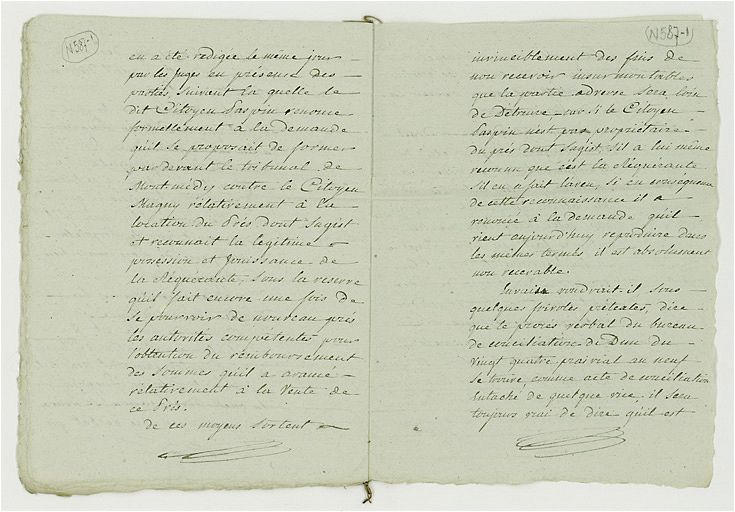 N587-1
en a été redigée le même jour
par les juges en présence des
parties, suivant la quelle le
dit Citoyen Paspin renonce
formellement à la demande
qu'il se proposait de former
par devant le tribunal de
Montmédy contre le Citoyen
Magny rélativement à la
location du Prés dont sagist
et reconnait la legitime
possession et jouissance de
la Réquérante, sous la reserve
qu'il fait encore une fois de
se pourvoir de nouveau près
les autorités compétentes pour
l'obtention du remboursement
des Sommes qu'il a avancé
rélativement à la Vente de
ce Prés.
de ces moyens sortent
N587-1
invinciblement des fins de
non recevoir insurmontables
que la partie adverse sera loin
de Détruire, car si le Citoyen
Paspin n'est pas propriétaire
du prés dont sagist, s'il a lui même
reconnu que c'est la Réquérante
s'il en a fait laveu, si en conséquence
de cette reconnaissance il a
renoncé à la Demande qu'il
vient aujourd'huy reproduire dans
les mêmes termes il est absolument
non recevable.
Envain voudrait-il sous
quelques frivoles prétextes, dire
que le procès verbal du bureau
de conciliation de Dun du
vingt quatre prairial an neuf
se trouve, comme acte de conciliation
entaché de quelque vice, il sera
toujours vrai de dire qu'il est